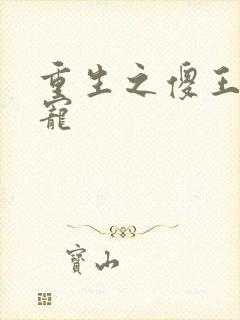 重生之傻王
寵
寶山